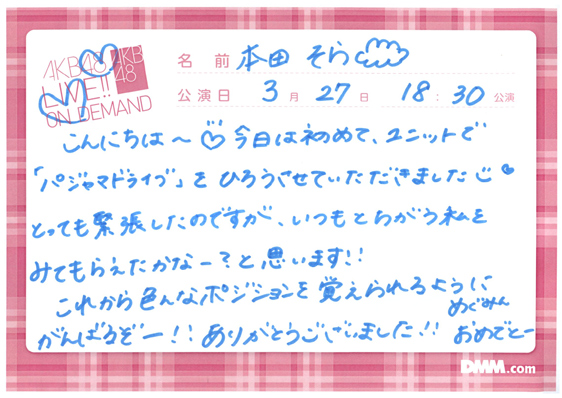 AKB48
LIVE!!
ON DEMAND
AKB
48
名前 本田 そら
公演日 3月27日 18:30公演
こんにちは〜♡今日は初めて、ユニットで
「パジャマドライブ」をひろうさせていただきました
とっても緊張したのですが、いつもとちがう私を
みてもらえたかなー?と思います!!
これから色んなポジションを覚えられるように
がんばるぞー!!ありがとうございました!!
めぐみん
おめでとー
DMM.com